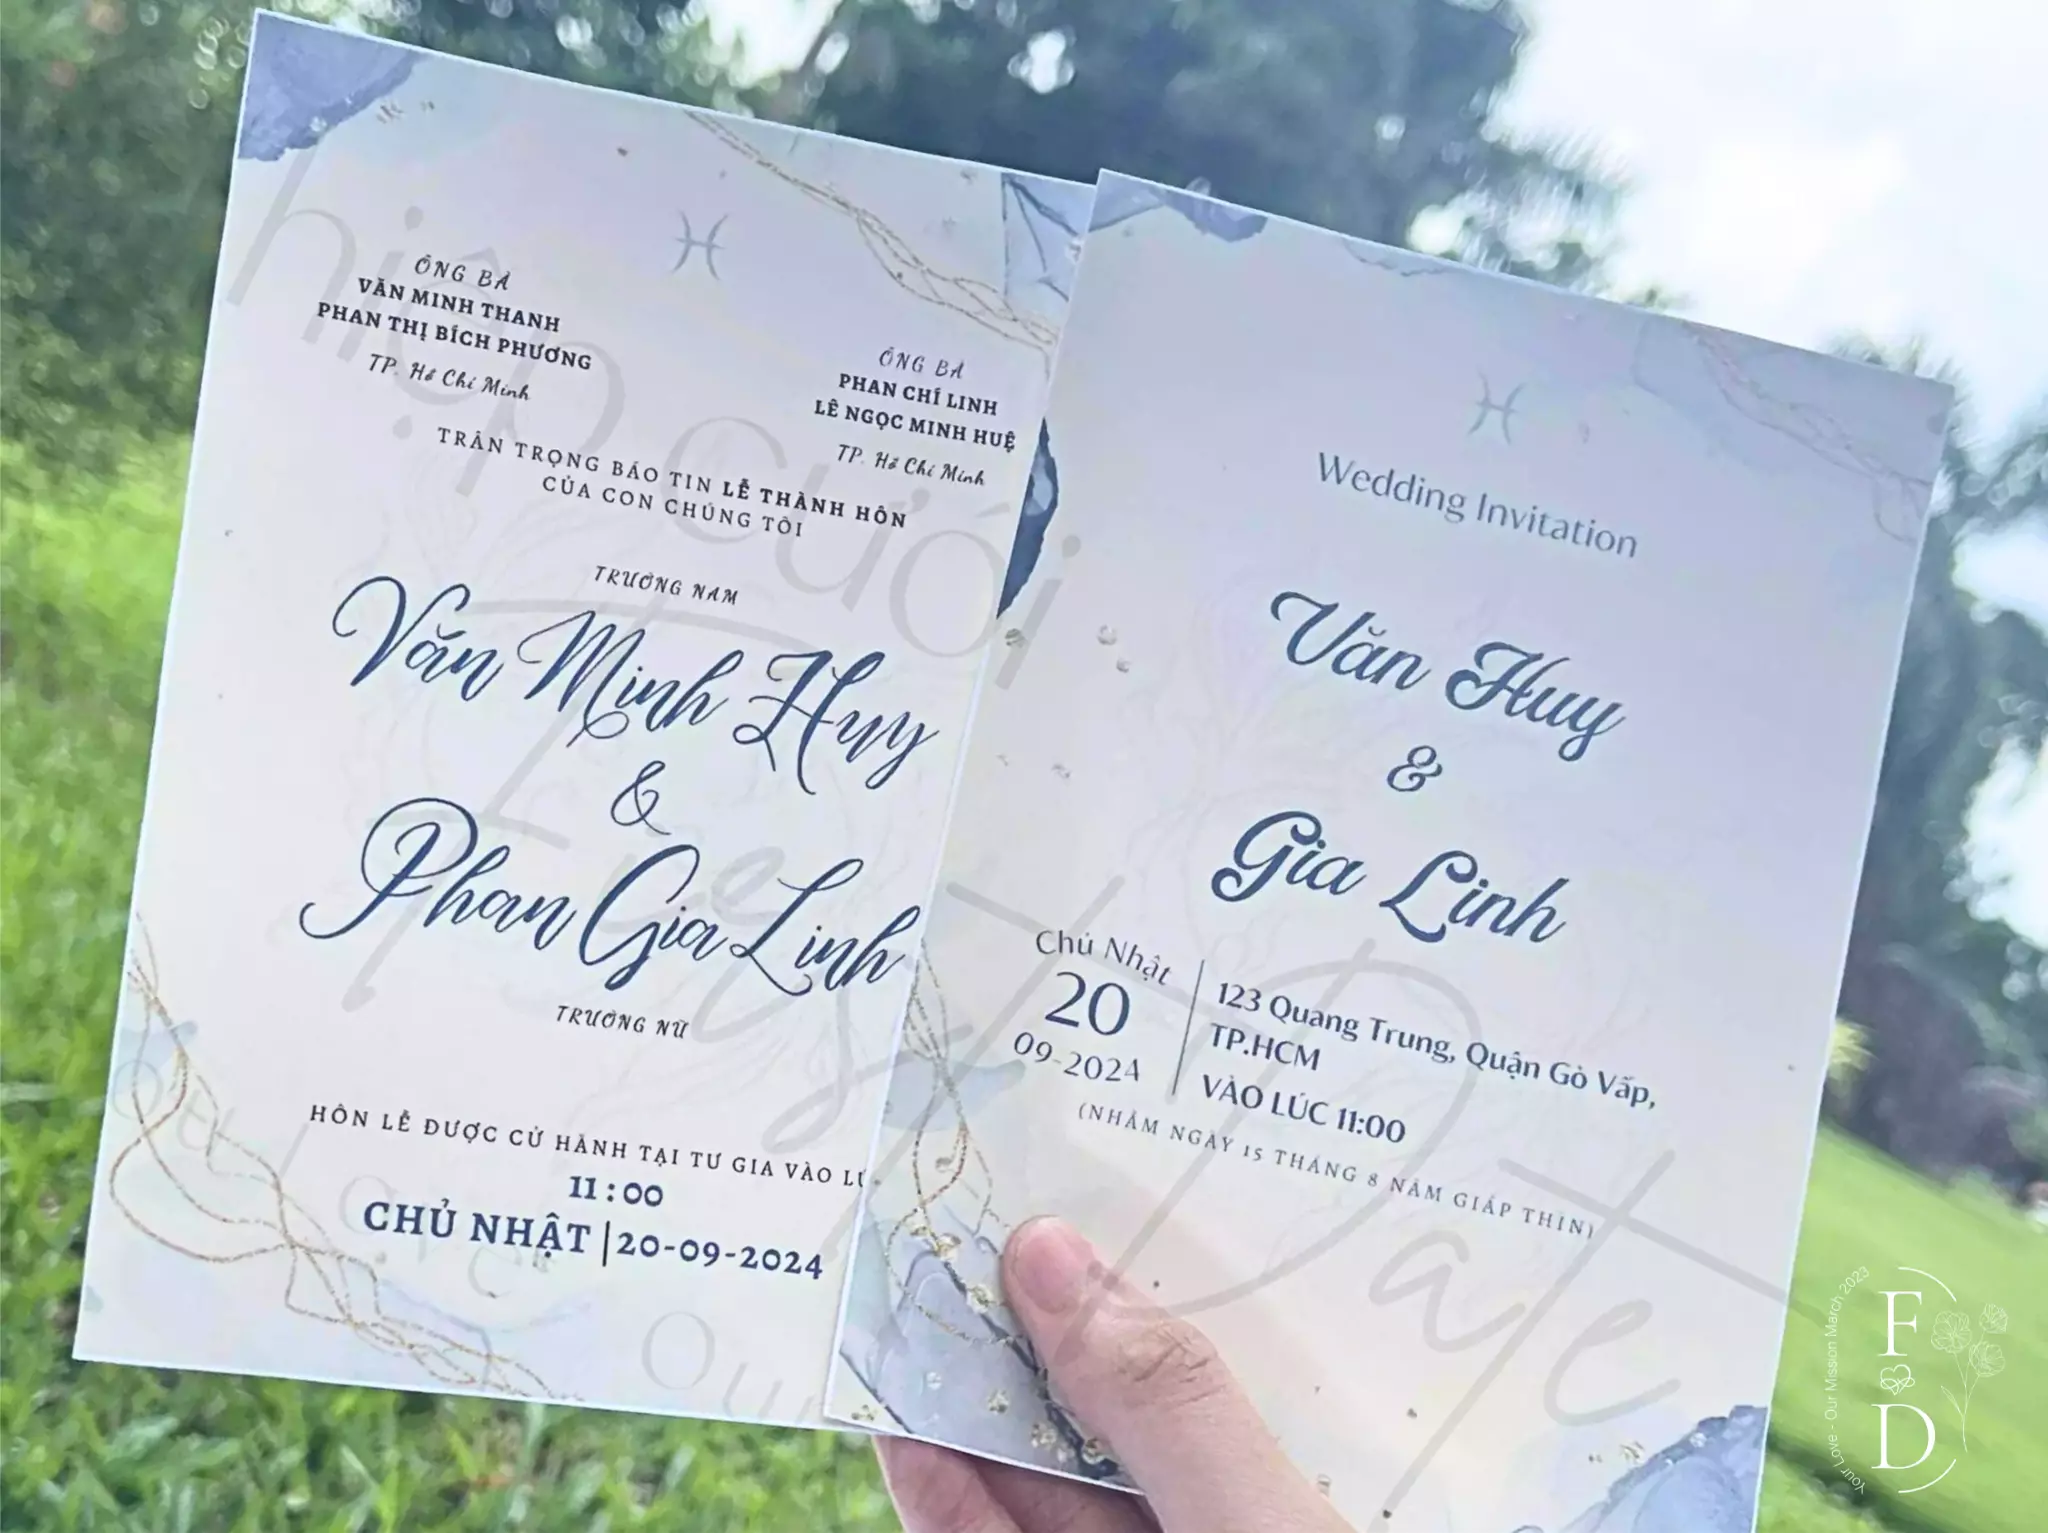 ÔNG BÀ
VĂN MINH THANH
PHAN THỊ BÍCH PHƯƠNG
TP. Hồ Chí Minh
ÔNG BÀ
PHAN CHÍ LINH
LÊ NGỌC MINH HUỆ
TP. Hồ Chí Minh
TRÂN TRỌNG BÁO TIN LỄ THÀNH HÔN
CỦA CON CHÚNG TÔI
TRƯỞNG NAM
Văn Minh Huy
&
Phan Gia Linh
TRƯỞNG NỮ
HÔN LỄ ĐƯỢC CỬ HÀNH TẠI TƯ GIA VÀO
11:00
CHỦ NHẬT | 20-09-2024
Wedding Invitation
Văn Huy
&
Gia Linh
Chủ Nhật
20
09-2024
123 Quang Trung, Quận Gò Vấp,
TP.HCM
VÀO LÚC 11:00
(NHẰM NGÀY 15 THÁNG 8 NĂM GIÁP THÌN)
hiệp cưới
Just Date
Your Love - Our Mission March 2023
F
D